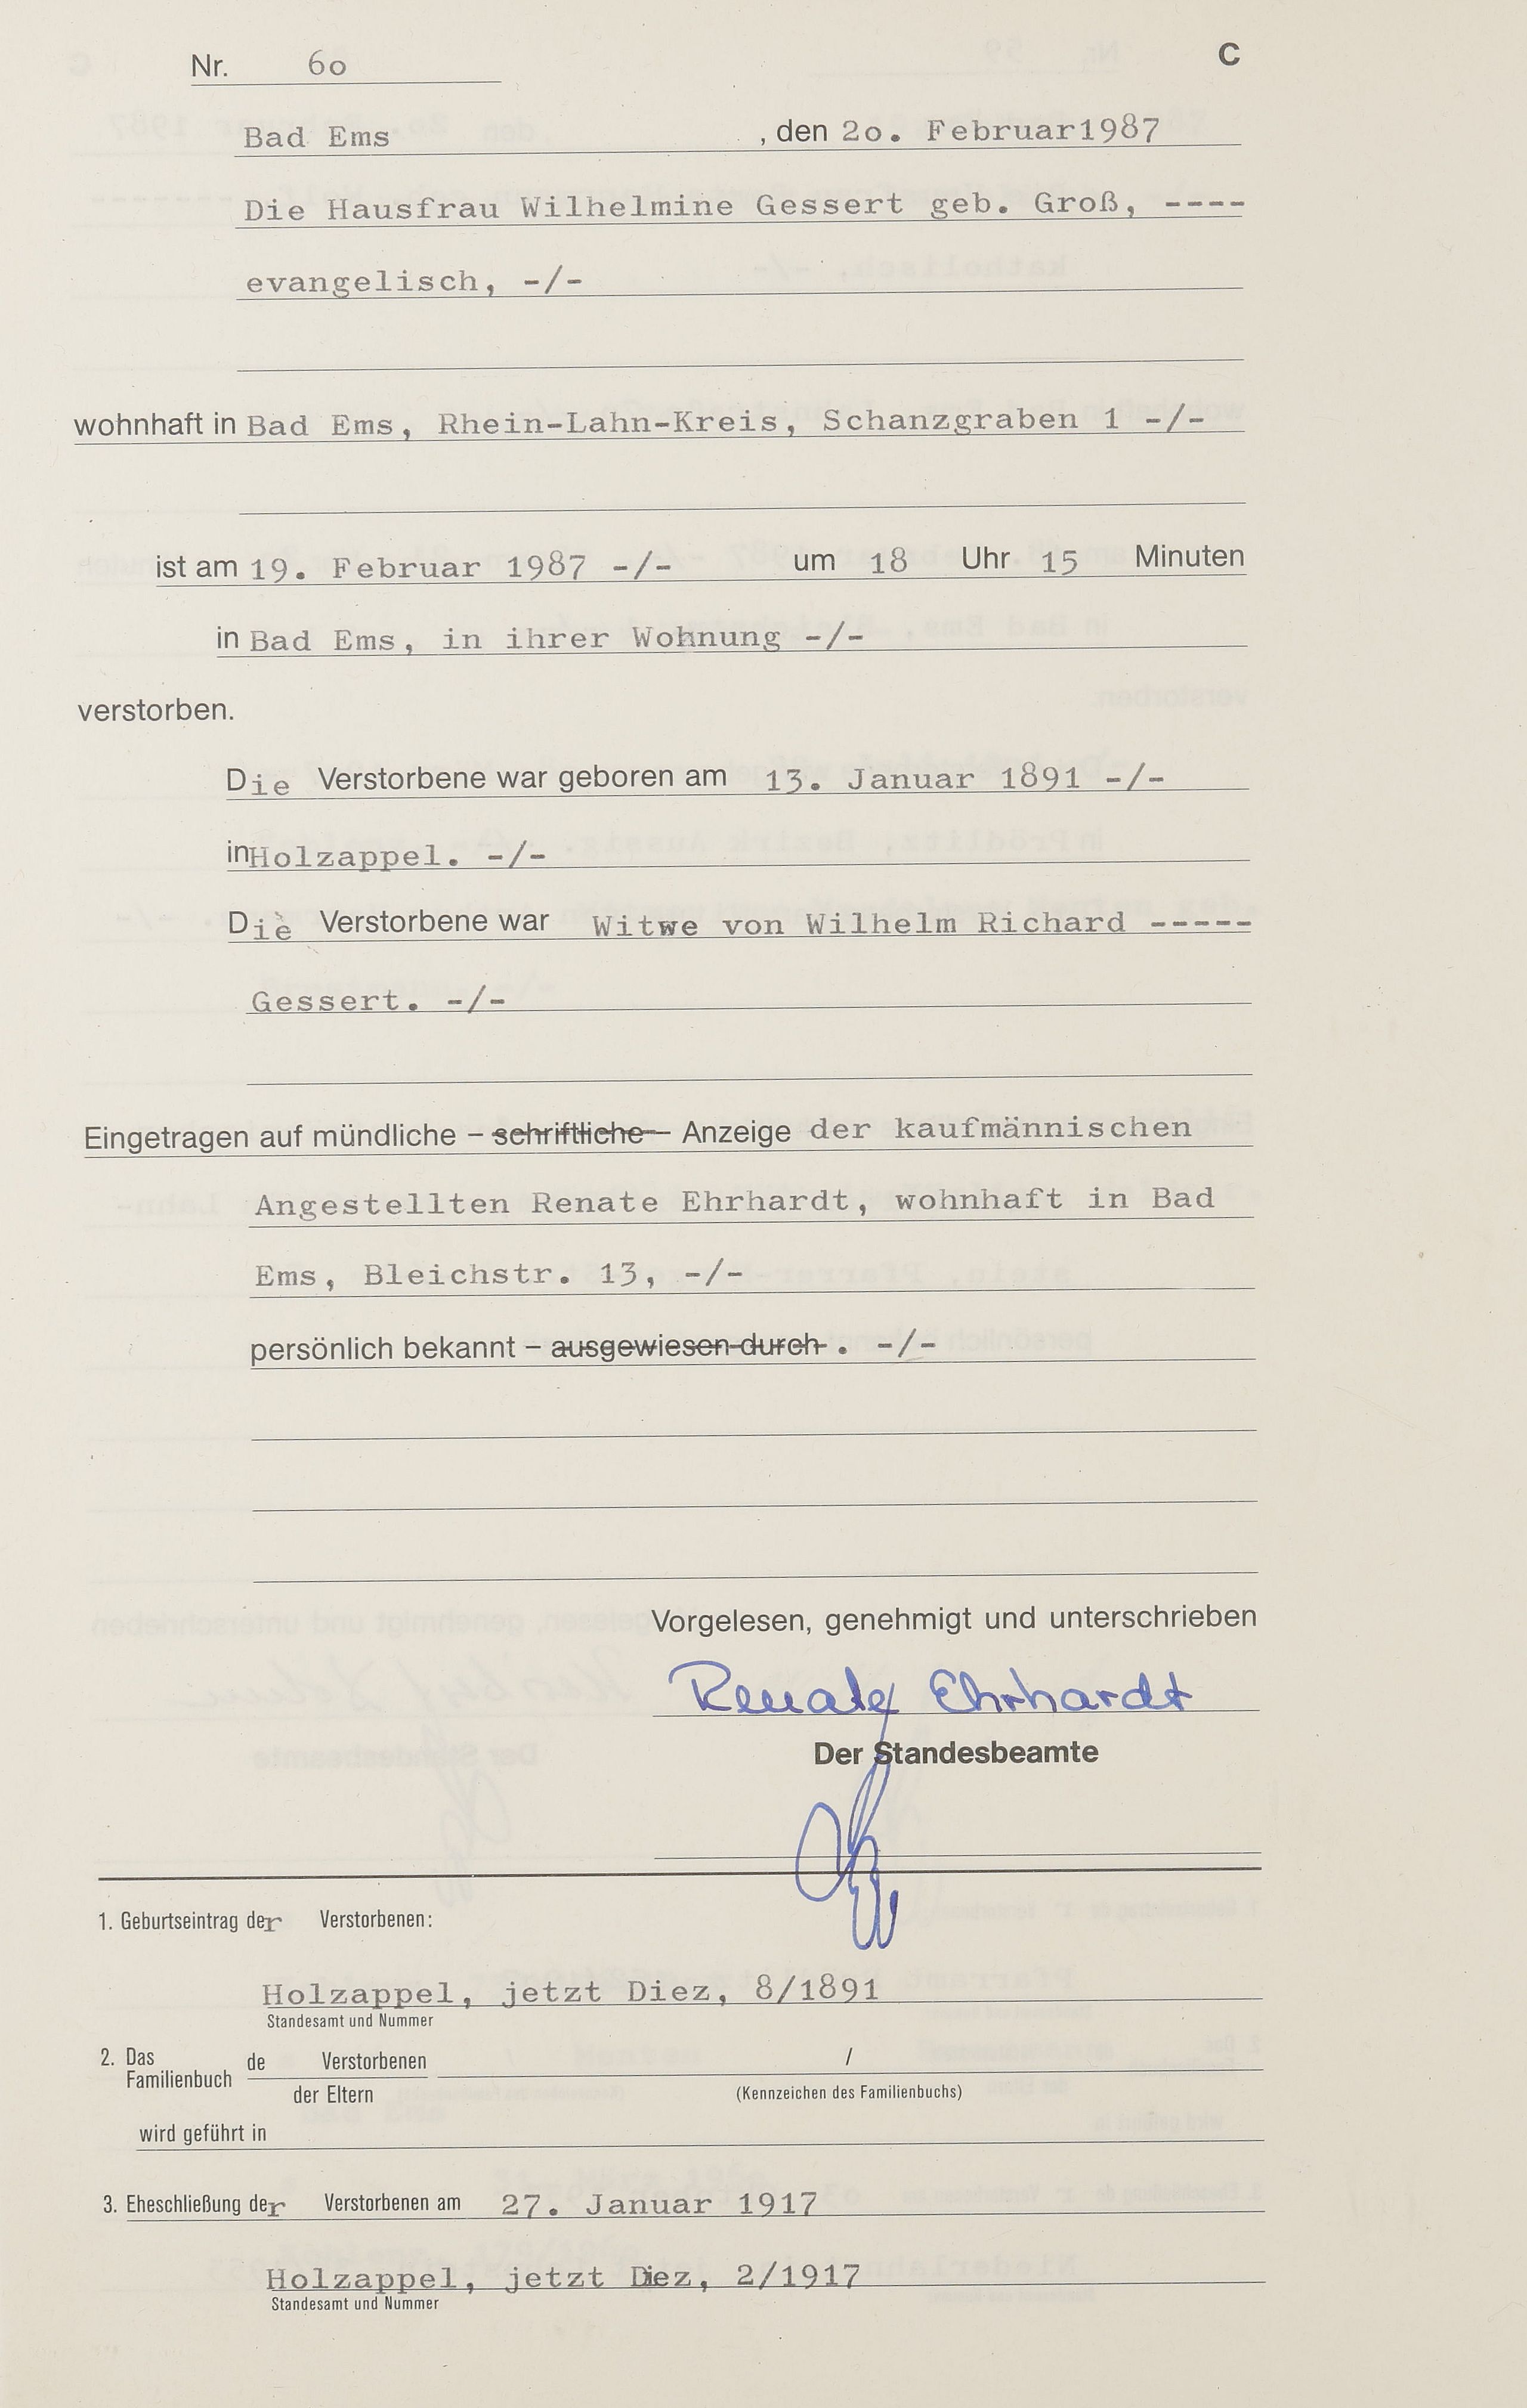 Nr. 6o C
Bad Ems , den 2o. Februar1987
Die Hausfrau Wilhelmine Gessert geb. Groß, ----
evangelisch, -/-
wohnhaft in Bad Ems, Rhein-Lahn-Kreis, Schanzgraben 1 -/-
ist am 19. Februar 1987 -/- um 18 Uhr 15 Minuten
in Bad Ems, in ihrer Wohnung -/-
verstorben.
Die Verstorbene war geboren am 13. Januar 1891 -/-
in Holzappel. -/-
Die Verstorbene war Witwe von Wilhelm Richard -----
Gessert. -/-
Eingetragen auf mündliche – schriftliche – Anzeige der kaufmännischen
Angestellten Renate Ehrhardt, wohnhaft in Bad
Ems, Bleichstr. 13, -/-
persönlich bekannt – ausgewiesen durch . -/-
Vorgelesen, genehmigt und unterschrieben
Renate Ehrhardt
Der Standesbeamte
1. Geburtseintrag der Verstorbenen:
Holzappel, jetzt Diez, 8/1891
Standesamt und Nummer
2. Das Familienbuch de Verstorbenen /
der Eltern (Kennzeichen des Familienbuchs)
wird geführt in
3. Eheschließung der Verstorbenen am 27. Januar 1917
Holzappel, jetzt Diez, 2/1917
Standesamt und Nummer